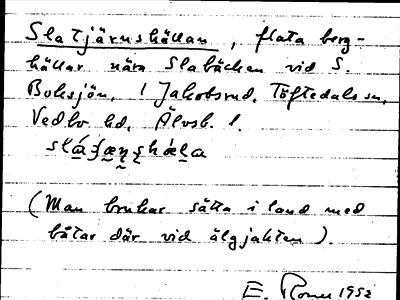 Slatjärnshällan, flata berg-
hällar nära Slabäcken vid S.
Boksjön, 1 Jakobsrud, Töftedals sn,
Vedbo hd, Älvsb. l.
(Man brukar sätta i land med
båtar där vid älgjakten).
E. 1952